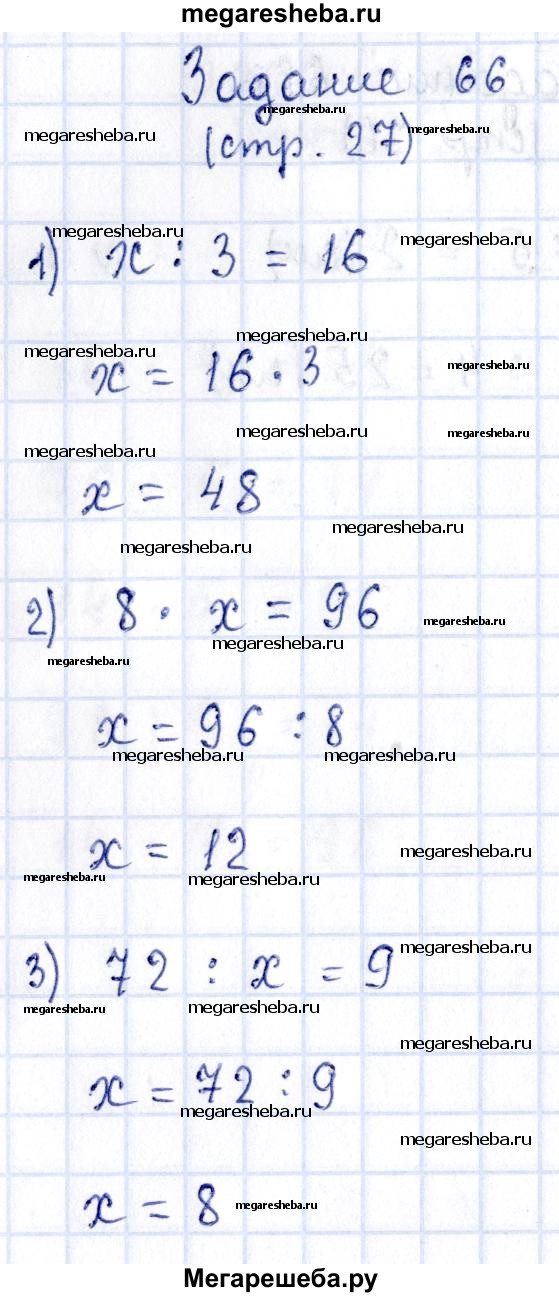 megaresheba.ru
Задание 66
megaresheba.ru
megaresheba.ru (стр. 27) megaresheba.ru
megaresheba.ru
1) x : 3 = 16 megaresheba.ru
megaresheba.ru
megaresheba.ru
x = 16 · 3 megaresheba.ru
megaresheba.ru megaresheba.ru
megaresheba.ru
x = 48
megaresheba.ru
megaresheba.ru
2) 8 · x = 96 megaresheba.ru
megaresheba.ru
megaresheba.ru
x = 96 : 8
megaresheba.ru megaresheba.ru
x = 12 megaresheba.ru
megaresheba.ru megaresheba.ru
megaresheba.ru
3) 72 : x = 9
megaresheba.ru megaresheba.ru
megaresheba.ru
x = 72 : 9
megaresheba.ru
megaresheba.ru
x = 8 megaresheba.ru
Мегарешеба.ру